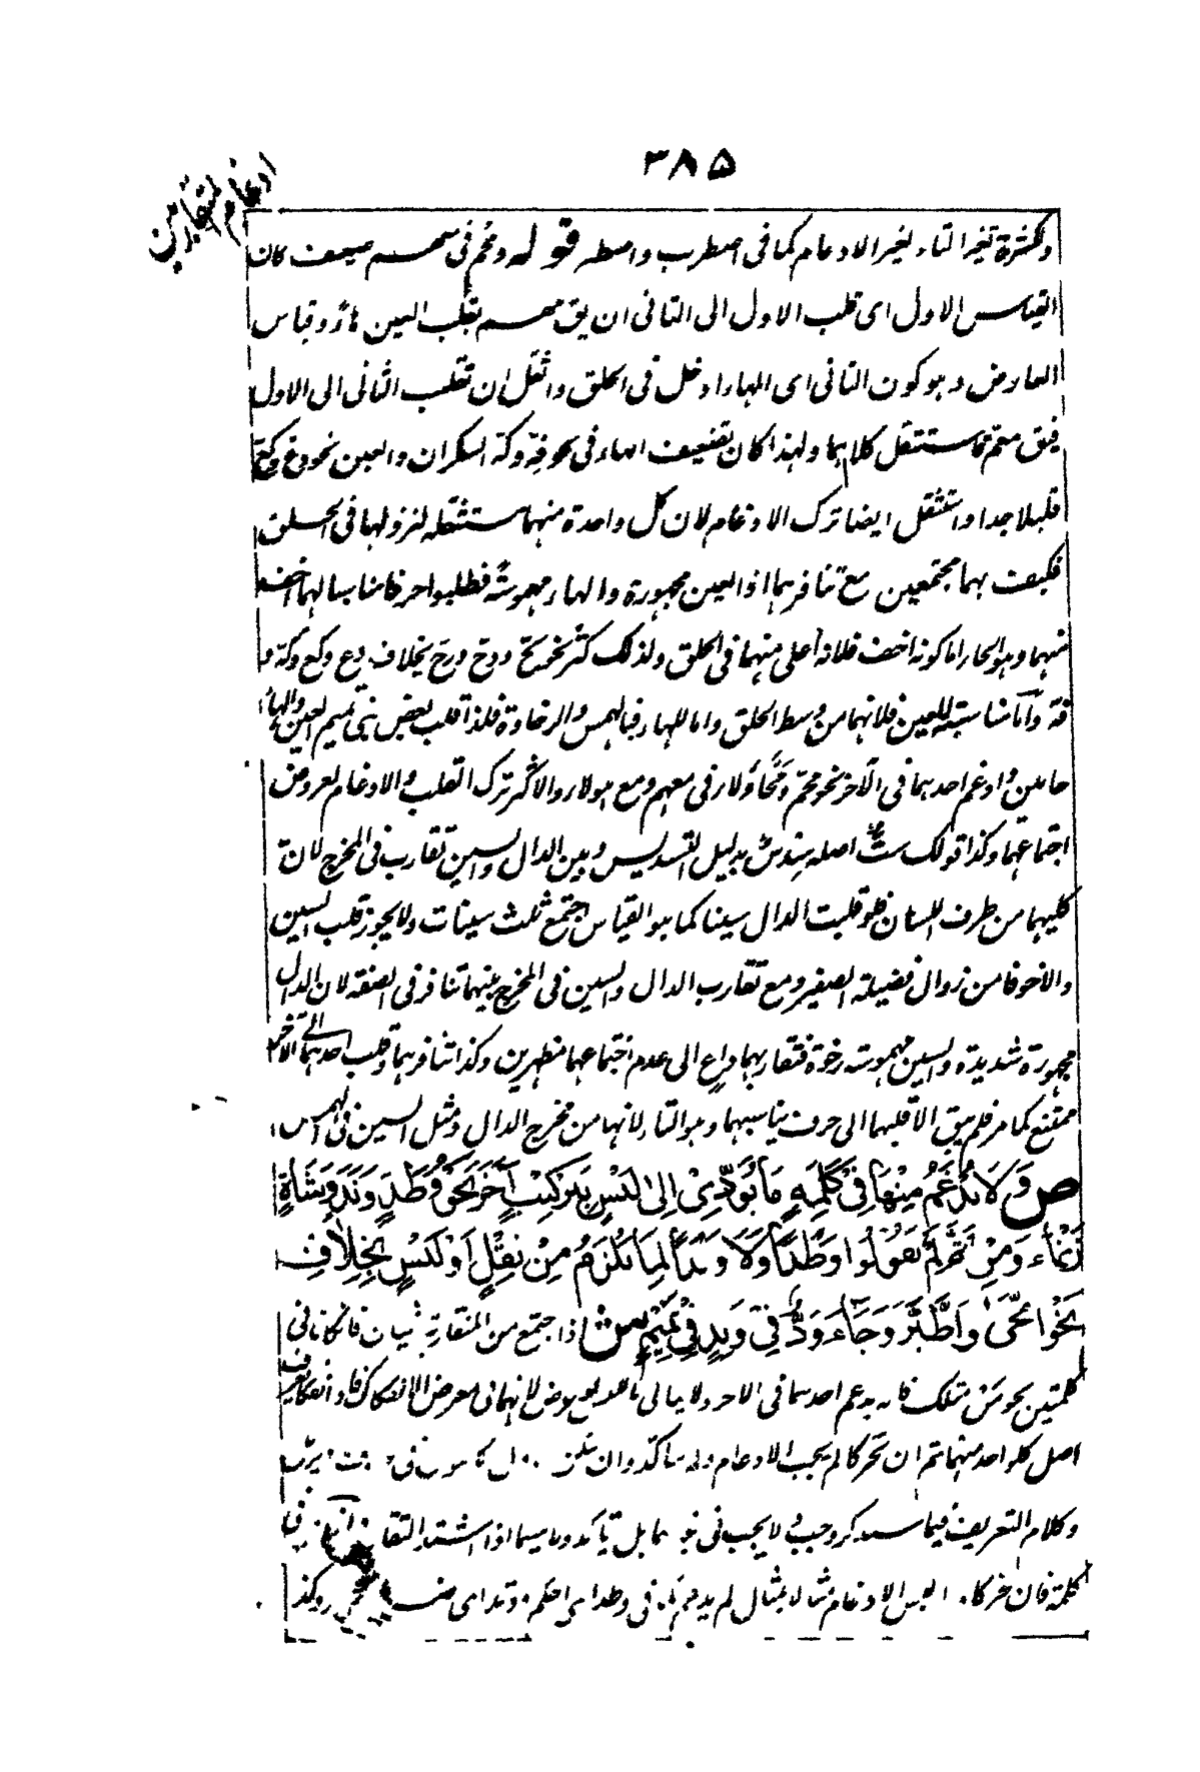 ٣٨٥
ادغام المتقاربين
ولكثرة تغير التاء لغير الادغام كما فى اضطرب واصطبر قوله ومحم فى معهم ضعيف كان
القياس الاول اى قلب الاول الى الثانى ان يق معهم بقلب العين هاءً وقياس
العارض وهو كون الثانى اى الهاء ادخل فى الحلق واثقل ان تقلب الثانى الى الاول
فيق معّم فاستثقل كلاهما ولهذا كان تضعيف الهاء فى نحو قهّ وكهّ السكران والعين نحو دعّ وكعّ
قليلا جدا واستثقل ايضا ترك الادغام لان كل واحدة منهما مستثقلة لنزولها فى الحلق
فكيف بهما مجتمعين مع تنافرهما اذ العين مجهورة والهاء مهموسة فطلبوا حرفا مناسبا لهما اخف
منهما وهو الحاء اما كونه اخف فلانه أعلى منهما فى الحلق ولذلك كثر نحو بحّ ودحّ ورحّ بخلاف دع وكع وكهّ و
قهّ وأما مناسبته للعين فلانهما من وسط الحلق واما للهاء فبالهمس والرخاوة فلذا قلب بعض بنى تميم العين والهاء
حاءين وادغم احدهما فى الآخر نحو محّم ومحّاؤلاء فى معهم ومع هؤلاء والاكثر ترك القلب والادغام لعروض
اجتماعهما وكذا قولك ستٌّ اصله سِدسٌ بدليل التسديس وبين الدال والسين تقارب فى المخرج لان
كليهما من طرف اللسان فلو قلبت الدال سينا كما هو القياس اجتمع ثلث سينات ولا يجوز قلب السين
دالا خوفا من زوال فضيلة الصفير ومع تقارب الدال والسين فى المخرج بينهما تنافر فى الصفة لان الدال
مجهورة شديدة والسين مهموسة رخوة فتقاربهما داع الى عدم اجتماعهما مظهرين وكذا تنافرهما وقلب احدهما الى الآخر
ممتنع كما مر فلم يبق الا قلبهما الى حرف يناسبهما وهو التاء لانها من مخرج الدال ومثل السين فى الهمس
ص وَلا يُدْغَمُ مِنْهَا فِى كَلِمَةٍ مَا يُؤَدِّى إِلى لَبْسٍ بِتَرْكِيبٍ آخَرَ نَحْوُ وَطَدٍ وَوَتَدٍ وَشَاةٍ
زَنْمَاء وَمِنْ ثَمَّ لَمْ يَقُولُوا وَطْداً وَلَا وَتْداً لِمَا يَلْزَمُ مِنْ ثِقْلٍ اَوْ لَبْسٍ بِخِلاٰفِ
نَحْوِ امَّحَى وَاطَّيَّرَ وَجَاءَ وَدٌّ فِى وَتِدٍ فِى تَمِيمٍ ش اذا اجتمع من المتقاربة شيئان فان كانا فى
كلمتين نحو من مثلك فانه يدغم احدهما فى الاخر ولا يبالى باللبس لو عرض لانهما فى معرض الانفكاك فاذا انفكا يعرف
اصل كل واحد منهما ثم ان تحركا لم يجب الادغام ولم يتأكد وان سكن
ولام التعريف فيما سنذكر وجب ولا يجب فى بل يتأكد ولا سيما اذا اشتد التقارب
كلمة فان تحركا البس الادغام مثالا بمثال لم يدغم فى وطد اى احكم ووتد اى